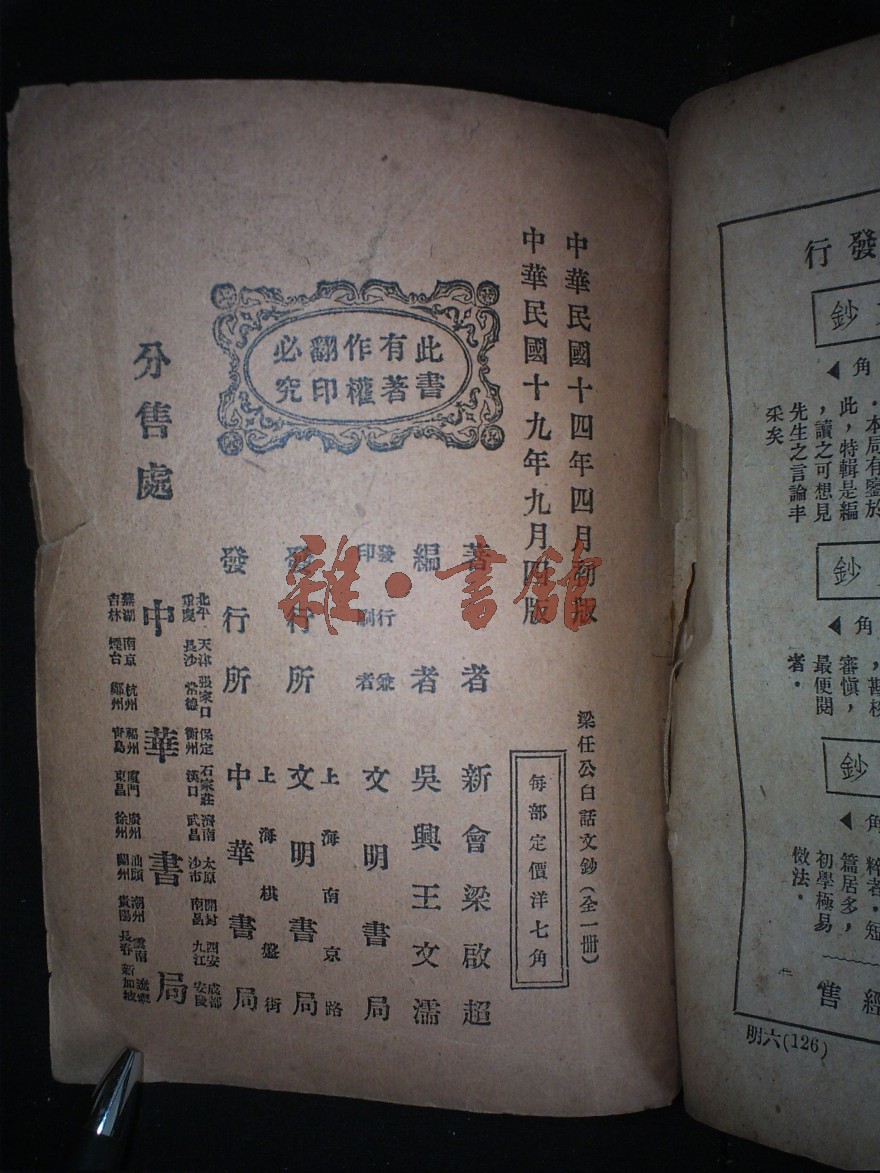 中華民國十四年四月初版
中華民國十九年九月四版
梁任公白話文鈔(全一冊)
每部定價洋七角
著者 新會梁啟超
編者 吳興王文濡
發行兼印刷者 文明書局
上海南京路
發行所 文明書局
上海棋盤街
發行所 中華書局
此書有著作權翻印必究
分售處
中華書局
北平 天津 張家口 保定 石家莊 濟南 太原 開封 西安 成都
重慶 長沙 常德 衡州 漢口 武昌 沙市 南昌 九江 安慶
蕪湖 南京 杭州 福州 廈門 廣州 汕頭 潮州 雲南 遼寧
吉林 煙台 鄭州 青島 東昌 徐州 蘭州 貴陽 長春 新加坡
雜·書館
發行
鈔
角
本局有鑒於
此,特輯是編
,讀之可想見
先生之言論丰
采矣
鈔
角
審慎,
最便閱
者。
鈔
角
粹著。短
篇居多,
初學極易
倣法。
經售
明六(126)